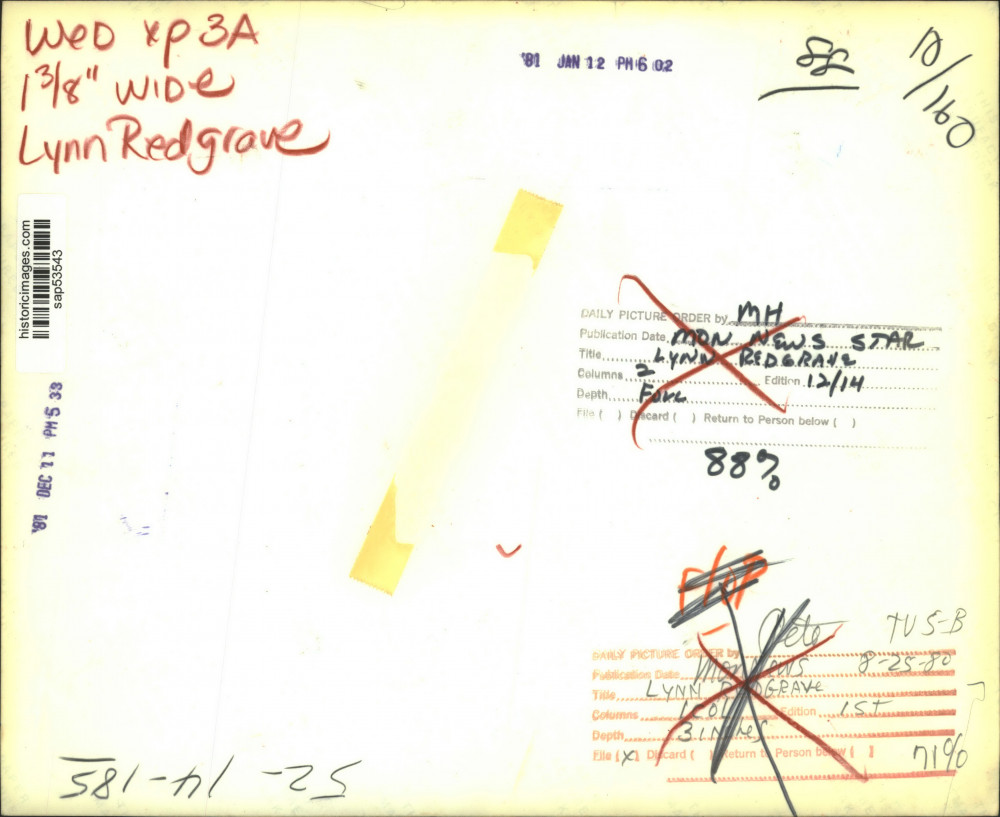 WED xp 3A
1 3/8" WIDE
Lynn Redgrave
'81 JAN 12 PM 6 02
historicimages.com
sap53543
DAILY PICTURE ORDER by MH
Publication Date MON NEWS STAR
Title LYNN REDGRAVE
Columns 2 Edition 12/14
Depth FULL
File ( ) Discard ( ) Return to Person below ( )
88%
'81 DEC 11 PM 5 33
Pete TV 5-B
DAILY PICTURE ORDER by
Publication Date Mon News 8-25-80
Title LYNN REDGRAVE
Columns 1 COL Edition 1ST
Depth 3 INCHES
File (X) Discard ( ) Return to Person below ( )
71%
52-14-185